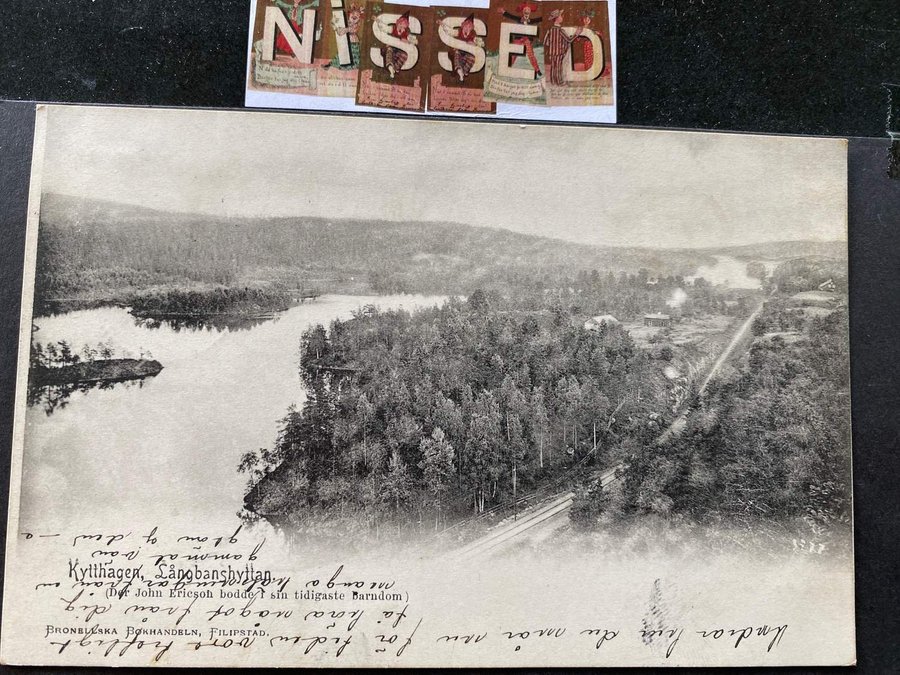 NISSED
Kytthagen, Långbanshyttan
(Der John Ericson bodde i sin tidigaste Barndom)
BRONELLSKA BOKHANDELN, FILIPSTAD.
Undrar hur du mår nu för tiden vore trefligt
få höra något från dig
många hälsningar från en
gammal vän
glöm ej den